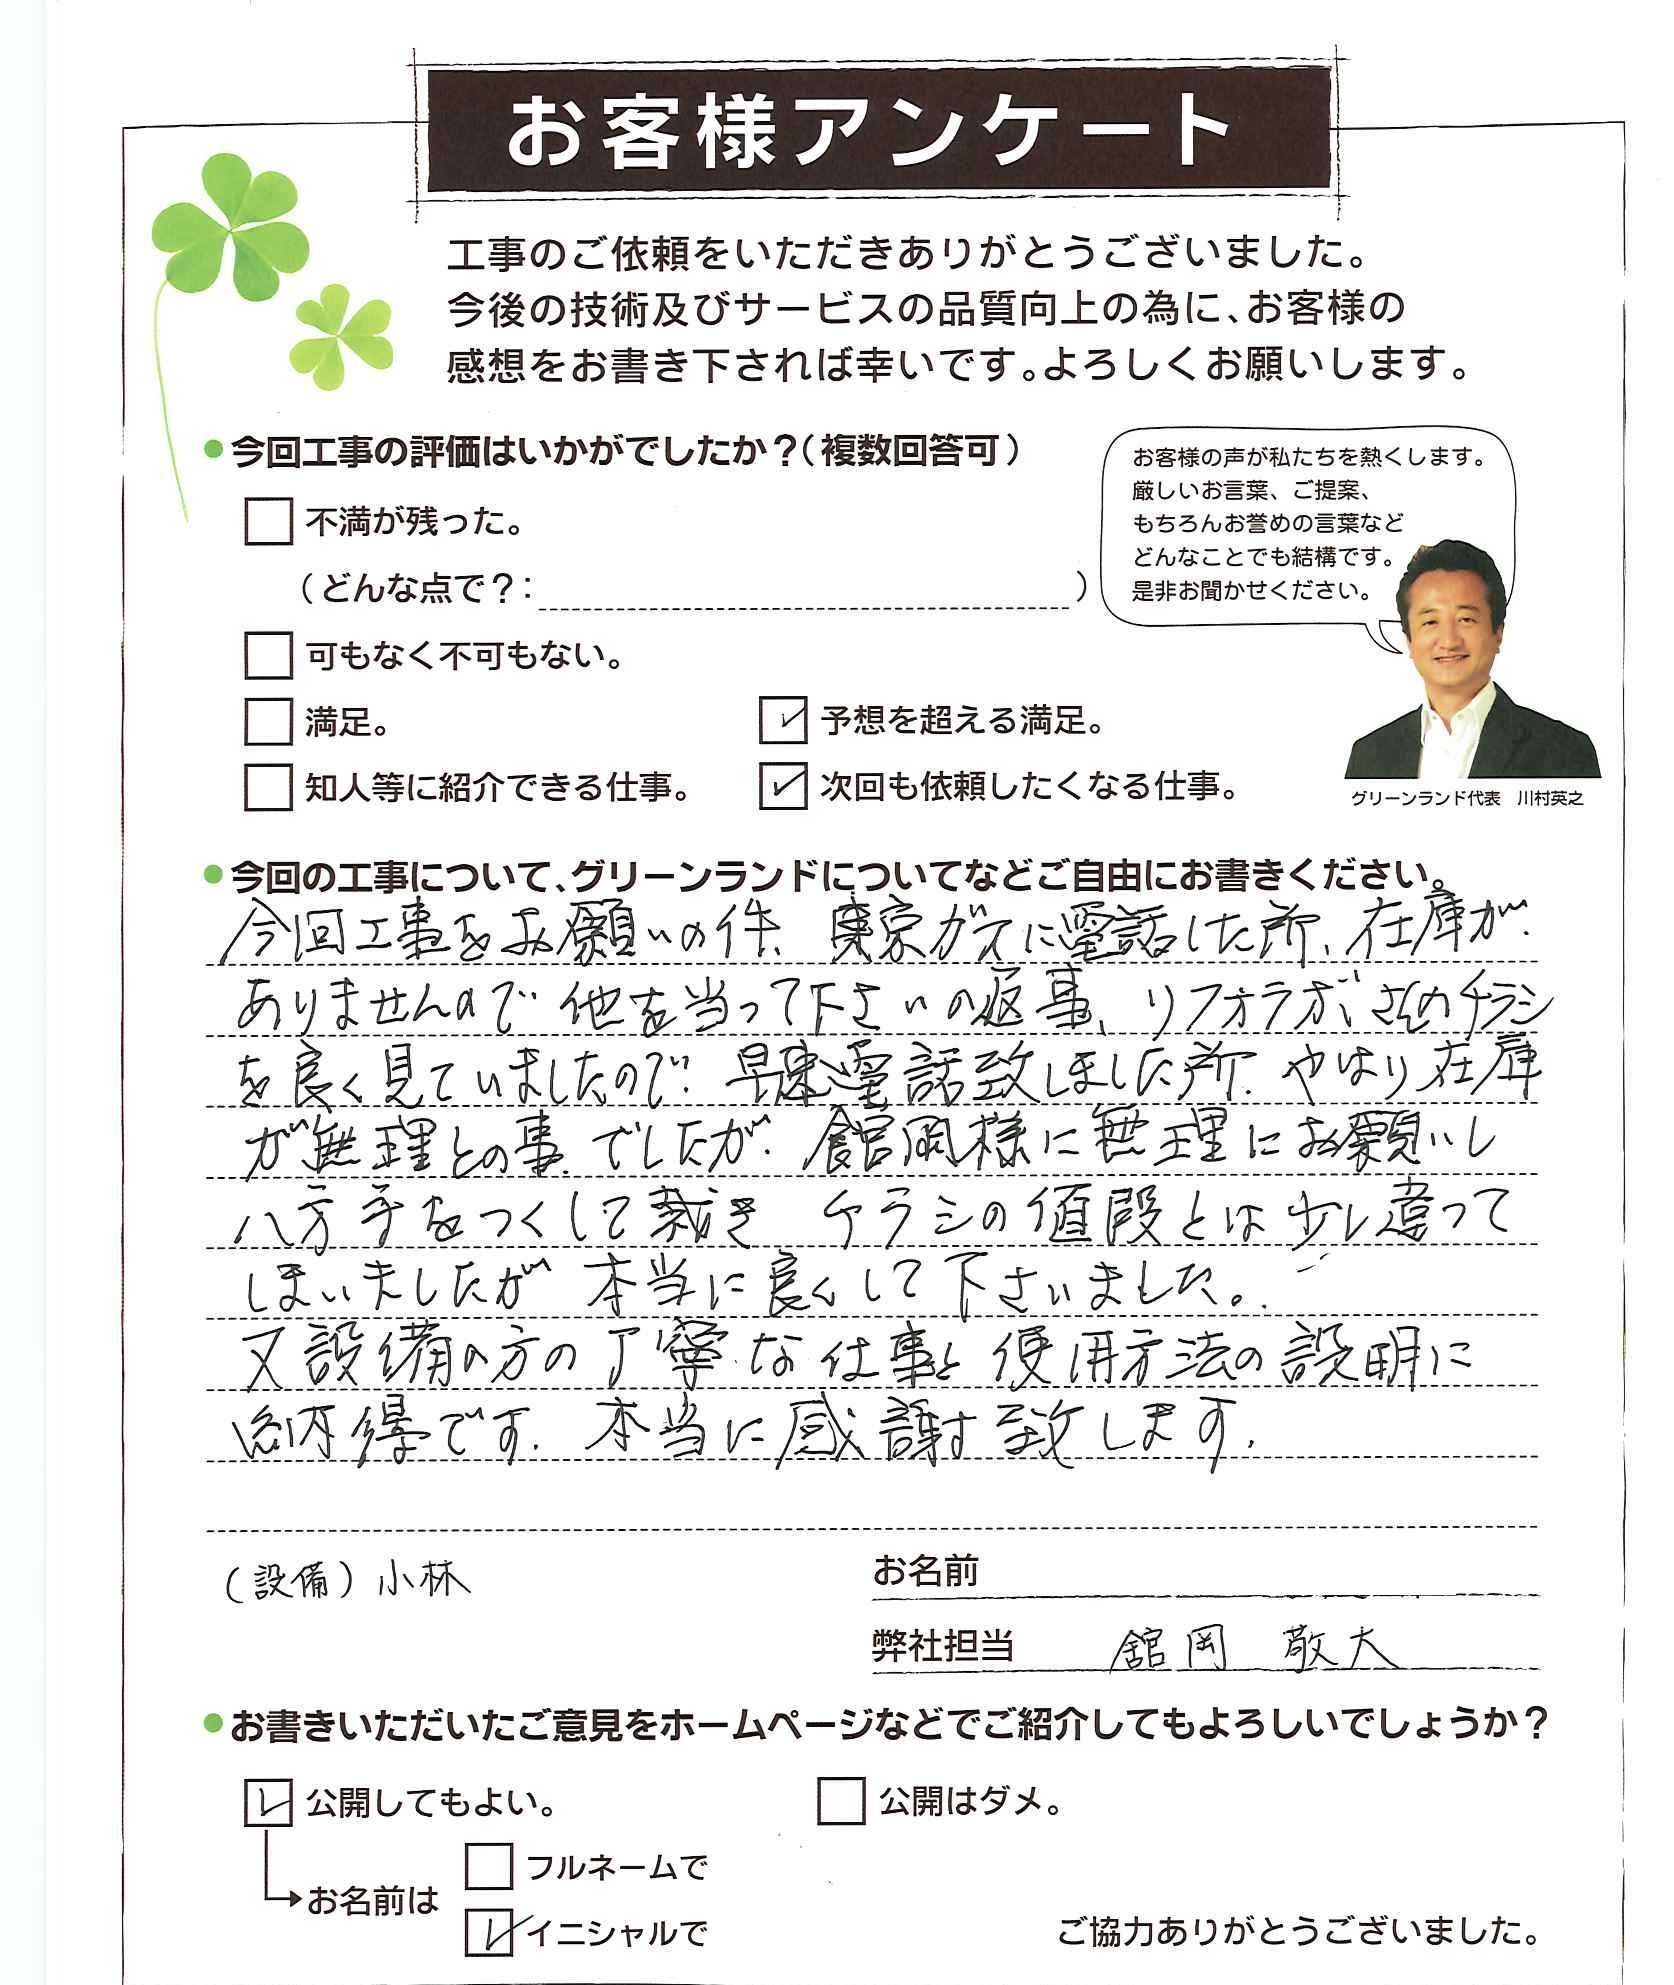 お客様アンケート
工事のご依頼をいただきありがとうございました。
今後の技術及びサービスの品質向上の為に、お客様の
感想をお書き下されば幸いです。よろしくお願いします。
●今回工事の評価はいかがでしたか？(複数回答可)
不満が残った。
(どんな点で？: )
可もなく不可もない。
満足。
予想を超える満足。
知人等に紹介できる仕事。
次回も依頼したくなる仕事。
お客様の声が私たちを熱くします。
厳しいお言葉、ご提案、
もちろんお誉めの言葉など
どんなことでも結構です。
是非お聞かせください。
グリーンランド代表 川村英之
●今回の工事について、グリーンランドについてなどご自由にお書きください。
今回工事をお願いの件、東京ガスに電話した所、在庫が
ありませんので他を当って下さいの返事、リフォラボさんのチラシ
を良く見ていましたので、早速電話致しました所、やはり在庫
が無理との事、でしたが、舘岡様に無理にお願いし
八方手をつくして戴き チラシの値段とは少し違って
しまいましたが 本当に良くして下さいました。
又設備の方の丁寧な仕事と使用方法の説明に
納得です。本当に感謝致します。
(設備)小林
お名前
弊社担当 舘岡 敬大
●お書きいただいたご意見をホームページなどでご紹介してもよろしいでしょうか？
公開してもよい。
公開はダメ。
お名前は
フルネームで
イニシャルで
ご協力ありがとうございました。